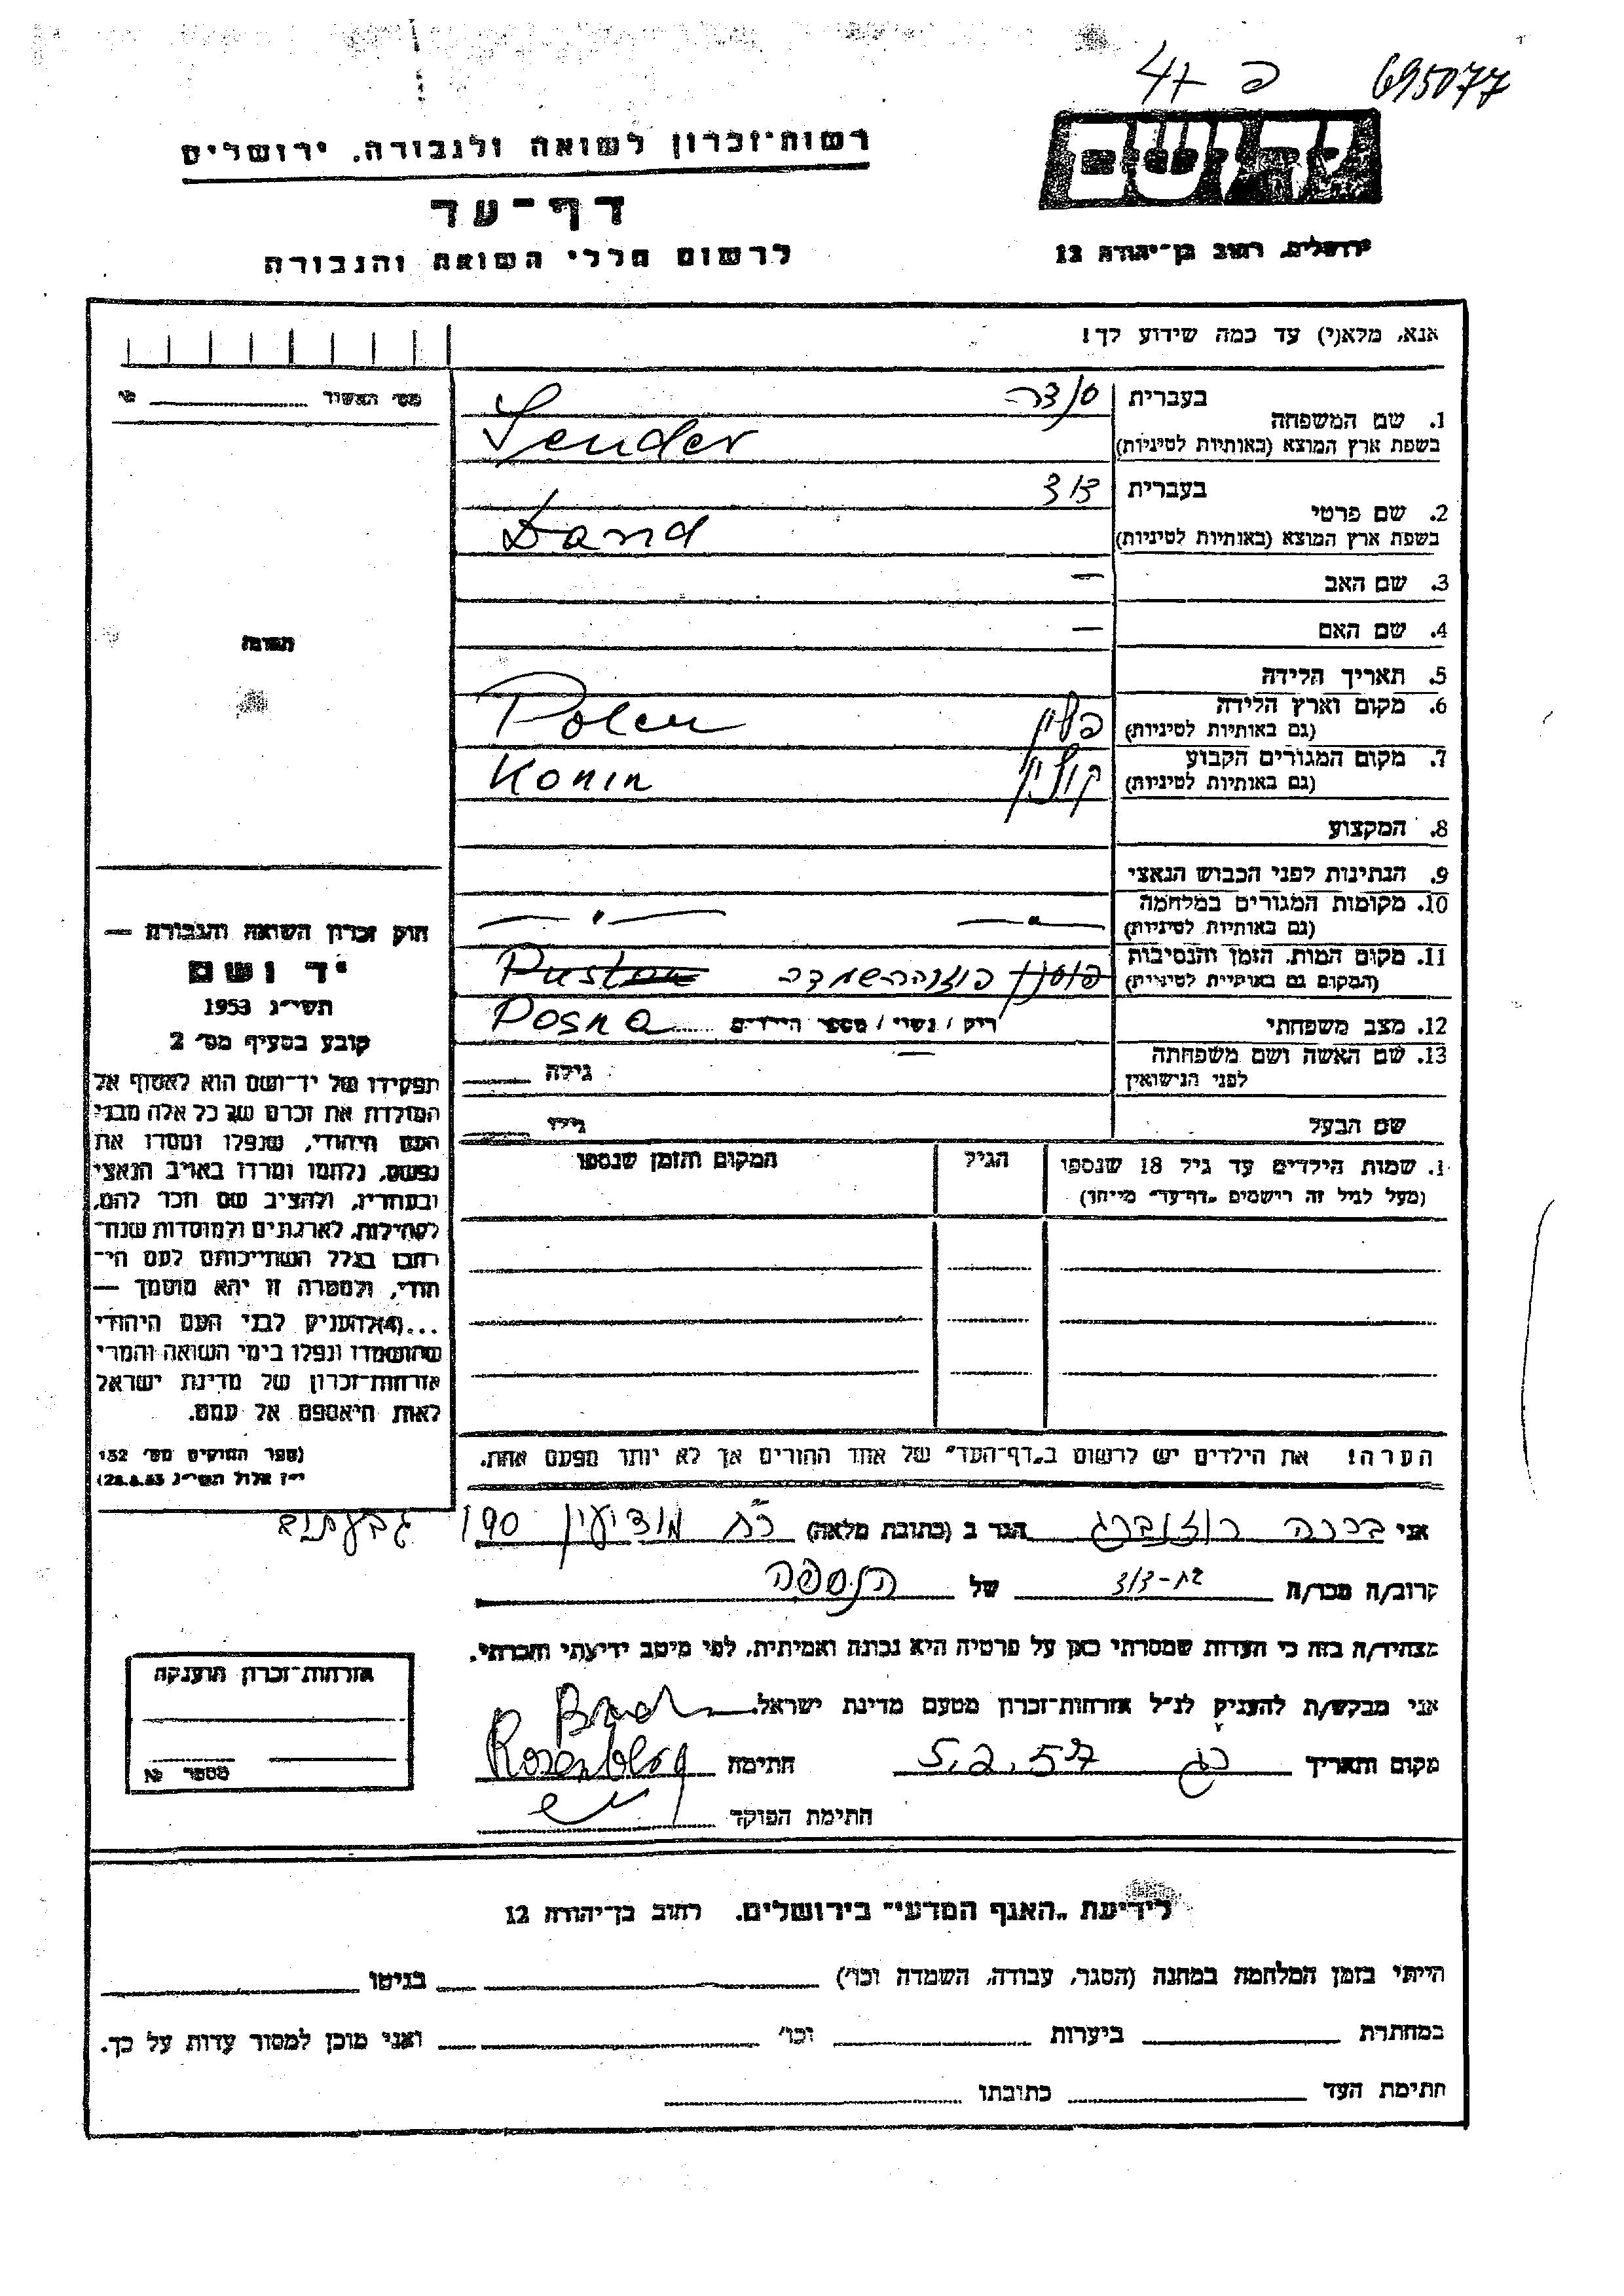 695077
פ 47
יד ושם
ירושלים, רחוב בן-יהודה 12
רשות-זכרון לשואה ולגבורה, ירושלים
דף-עד
לרשום חללי השואה והגבורה
אנא, מלא(י) עד כמה שידוע לך!
מס׳ האשור
1. שם המשפחה
בעברית
בשפת ארץ המוצא (באותיות לטיניות)
Sender
2. שם פרטי
בעברית
דוד
בשפת ארץ המוצא (באותיות לטיניות)
3. שם האב —
4. שם האם —
5. תאריך הלידה
6. מקום וארץ הלידה
(גם באותיות לטיניות)
פולין Polen
7. מקום המגורים הקבוע
(גם באותיות לטיניות)
Konin
8. המקצוע
9. הנתינות לפני הכבוש הנאצי
10. מקומות המגורים במלחמה
(גם באותיות לטיניות)
11. מקום המות, הזמן והנסיבות
(המקום גם באותיות לטיניות)
פוזנה השמדה
Posna
12. מצב משפחתי
רוק / נשוי / מספר הילדים
13. שם האשה ושם משפחתה
לפני הנישואין
— גילה
שם הבעל גילו
1. שמות הילדים עד גיל 18 שנספו
(מעל לגיל זה רישמים „דף-עד״ מיוחד)
הגיל
המקום והזמן שנספו
הערה! את הילדים יש לרשום ב„דף-העד״ של אחד ההורים אך לא יותר מפעם אחת.
תמונה
חוק זכרון השואה והגבורה —
יד ושם
תשי״ג 1953
קובע בסעיף מס׳ 2
תפקידו של יד-ושם הוא לאסוף אל
המולדת את זכרם של כל אלה מבני
העם היהודי, שנפלו ומסרו את
נפשם, נלחמו ומרדו באויב הנאצי
ובעוזריו, ולהציב שם וזכר להם,
לקהילות, לארגונים ולמוסדות שנח-
רבו בגלל השתייכותם לעם הי-
הודי, ולמטרה זו יהא מוסמך —
...(4)להעניק לבני העם היהודי
שהושמדו ונפלו בימי השואה והמרי
אזרחות-זכרון של מדינת ישראל
לאות היאספם אל עמם.
(ספר החוקים מס׳ 132
י״ז אלול תשי״ג 28.8.53)
אני ברכה רוזנברג הגר ב (כתובת מלאה) רח מודיעין 190 גבעתיים
קרוב/ה מכר/ה בת-דוד של הנספה
מצהיר/ה בזה כי העדות שמסרתי כאן על פרטיה היא נכונה ואמיתית, לפי מיטב ידיעתי והכרתי.
אני מבקש/ת להעניק לנ״ל אזרחות-זכרון מטעם מדינת ישראל.
מקום ותאריך רג 5.2.57 חתימה Rosenberg
חתימת הפוקד
אזרחות-זכרון הוענקה
מספר №
לידיעת „האגף המדעי״ בירושלים, רחוב בן-יהודה 12
הייתי בזמן המלחמה במחנה (הסגר, עבודה, השמדה וכו׳) בגיטו
במחתרת ביערות וכו׳ ואני מוכן למסור עדות על כך.
חתימת העד כתובתו